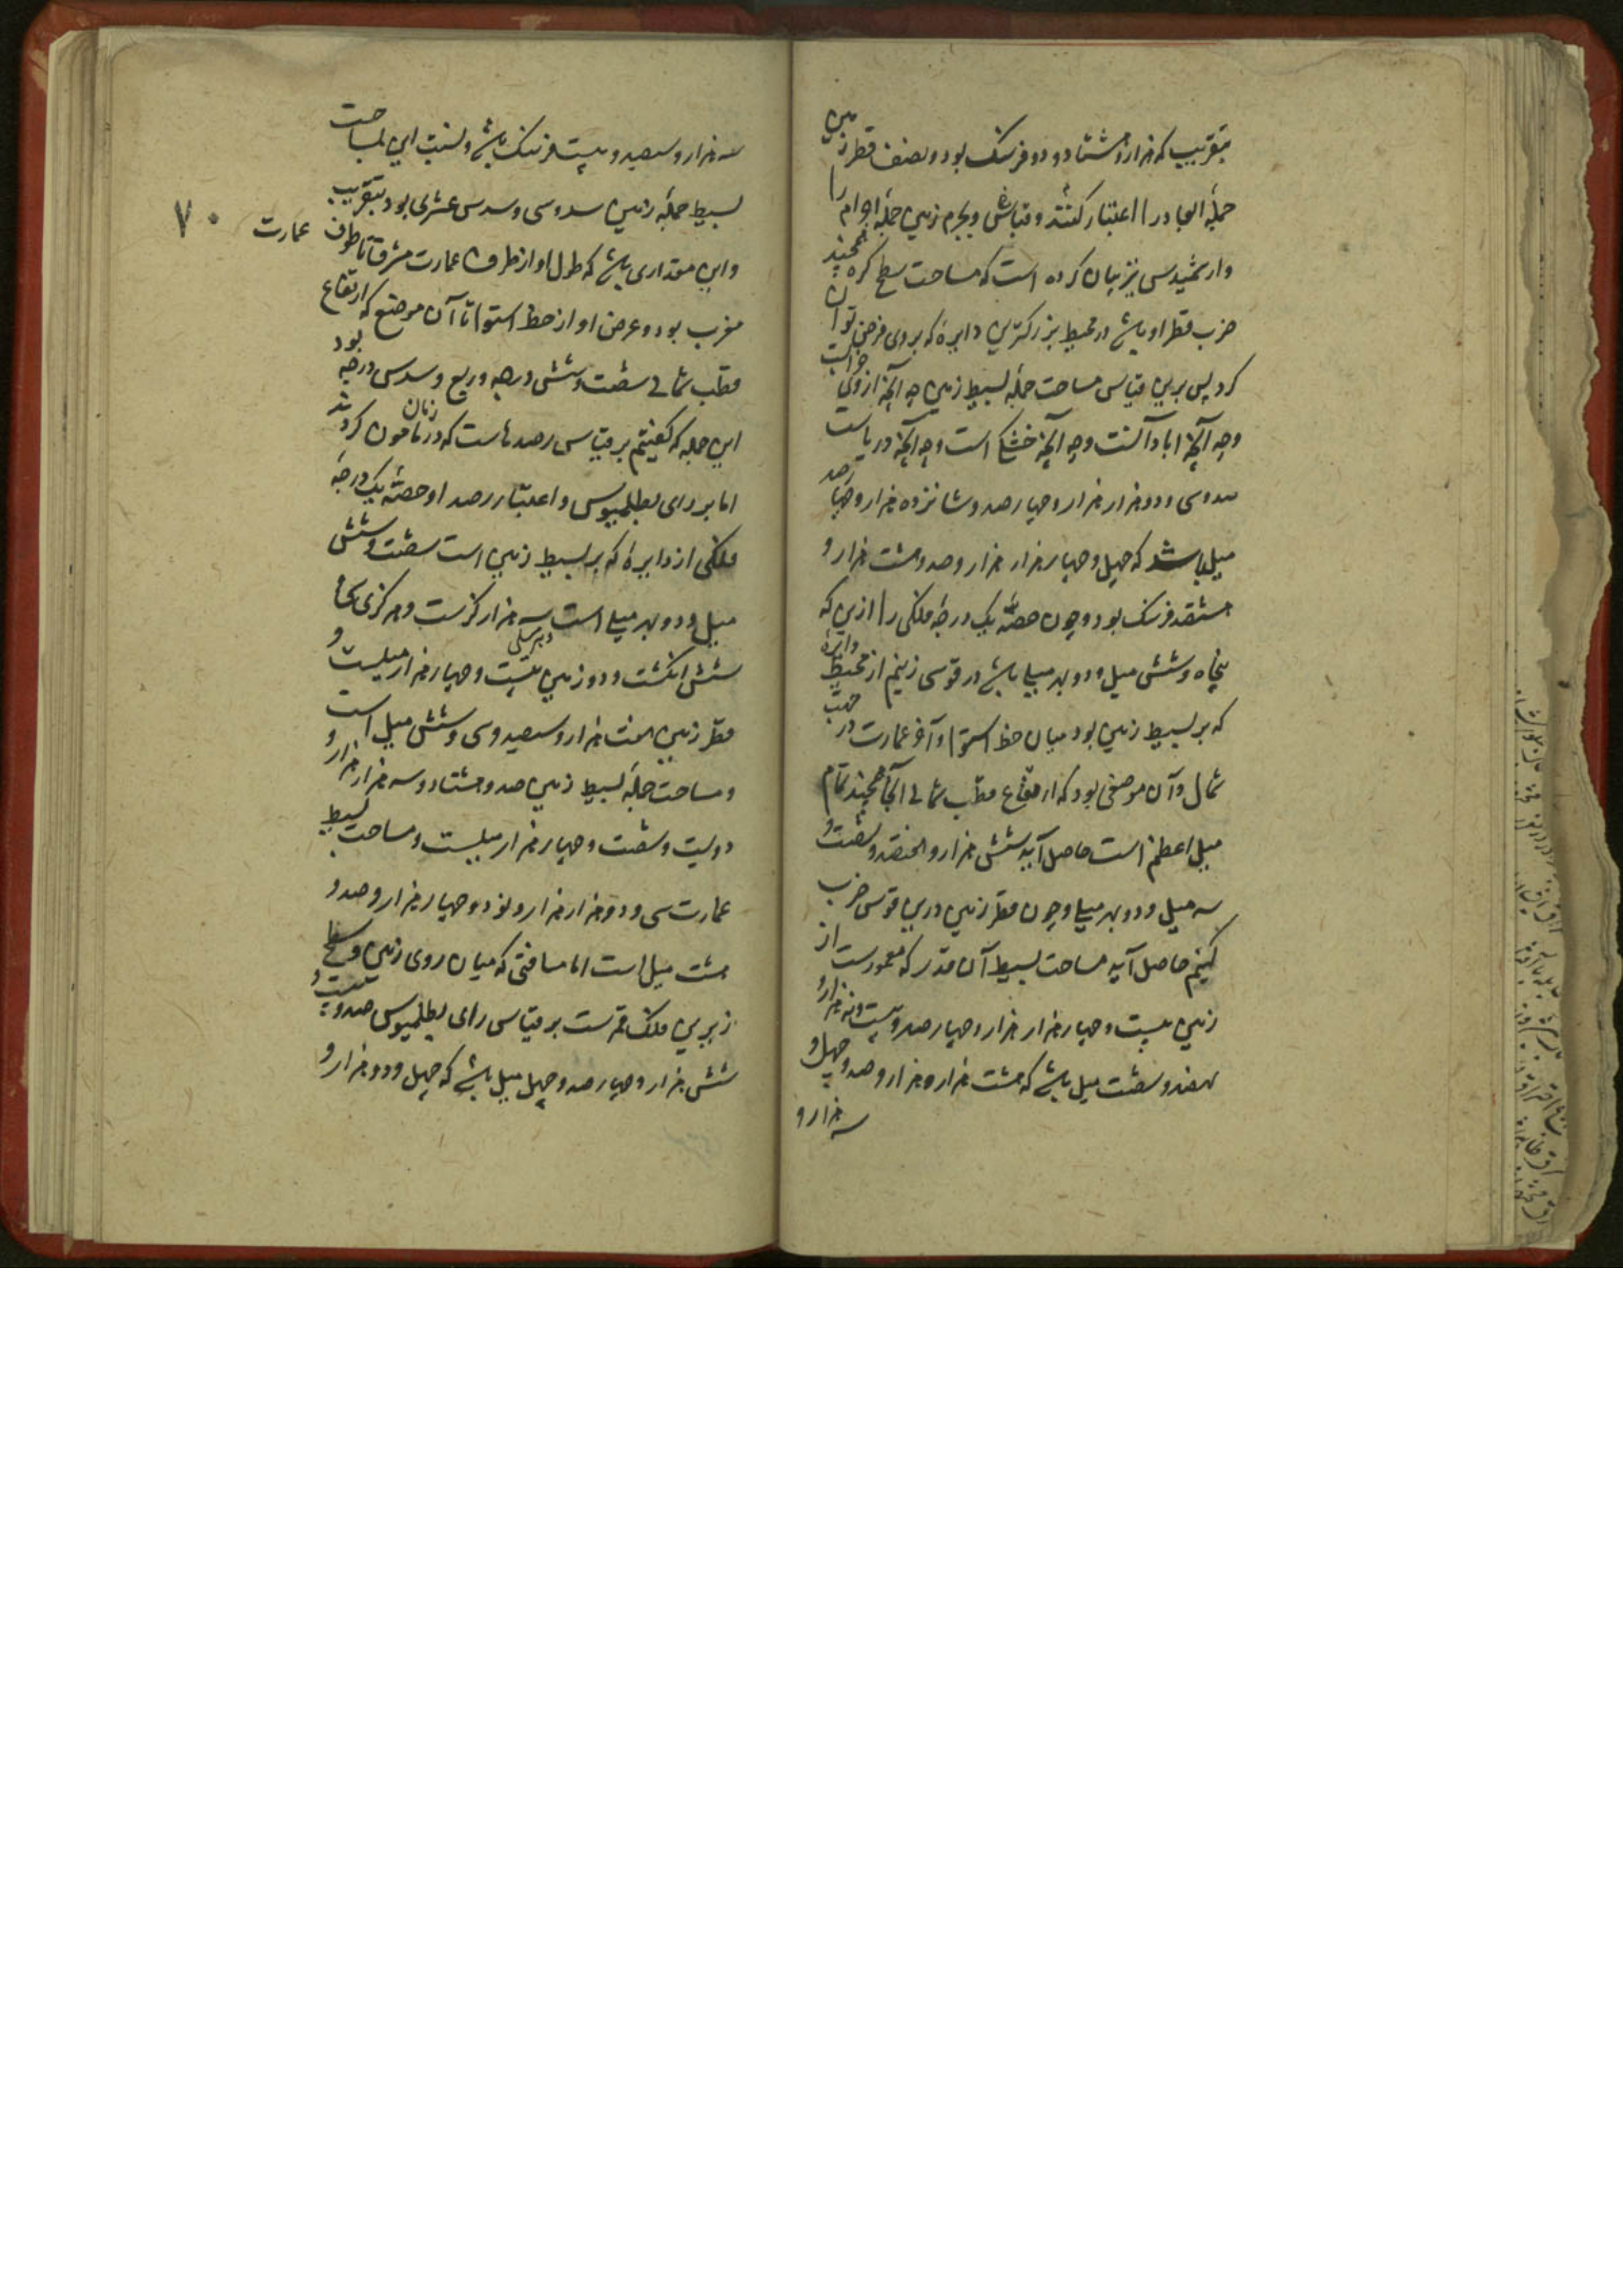 بتقریب که هزار و هشتاد و دو فرسنک بود و نصف قطر زمین
جمله ابعاد را اعتبار کنند و قیاس وی بجرم زمین جمله اجرام را
و ارشمیدس نیز بیان کرده است که مساحت سطح کره همچند
ضرب قطر او باشد در محیط بزرکترین دایره که بر وی فرض توان
کرد پس برین قیاس مساحت جمله بسیط زمین چه آنچه از وی خرابست
و چه آنچه ابادآنست و چه آنچه خشک است و چه آنچه دریاست
صد و سی و دو هزار هزار و چهارصد و شانزده هزار و چهارصد
میل باشد که چهل و چهار هزار هزار و صد و هشت هزار و
هشتصد فرسنک بود و چون حصه یک درجه فلکی را ازین که
پنجاه و شش میل و دو بهر میلی باشد در قوسی زنیم از محیط دایره
که بر بسیط زمین بود میان خط استوا و آخر عمارت در جهت
شمال و آن موضعی بود که ارتفاع قطب شمالی آنجا همچند تمام
میل اعظم است حاصل آید شش هزار و هفتصد و شصت و
سه میل و دو بهر میلی و چون قطر زمین درین قوس ضرب
کنیم حاصل آید مساحت بسیط آن قدر که معمورست از
زمین بیست و چهار هزار هزار و چهارصد و بیست و نه هزار و
هفصد و شصت میل باشد که هشت هزار هزار و صد و چهل و
سه هزار و
سه هزار و سیصد و بیست فرسنک باشد و نسبت این بمساحت
بسیط جمله زمین سدوسی و سدس عشری بود بتقریب
و این مقداری باشد که طول او از طرف عمارت مشرق تا طرف عمارت
۷۰
مغرب بود و عرض او از خط استوا تا آن موضع که ارتفاع
قطب شمالی شصت و شش درجه و ربع و سدس درجه بود
این جمله که کفتیم بر قیاس رصدهاست که در زمان مامون کردند
اما بر رای بطلمیوس و اعتبار رصد او حصه یک درجه
فلکی از دایره که بر بسیط زمین است شصت و شش
میل و دو بهر میلی است سه هزار کزست و هر کزی
شش انکشت و دو زمین بیست و چهار هزار میلست و
قطر زمین هفت هزار و سیصد و سی و شش میل است
و مساحت جمله بسیط زمین صد و هشتاد و سه هزار هزار و
دویست و شصت و چهار هزار میلست و مساحت بسیط
عمارت سی و دو هزار هزار و نود و چهار هزار و صد و
هشت میل است اما مسافتی که میان روی زمین و سطح
زیرین فلک قمرست بر قیاس رای بطلمیوس صد و بیست و
شش هزار و چهارصد و چهل میل باشد که چهل و دو هزار و